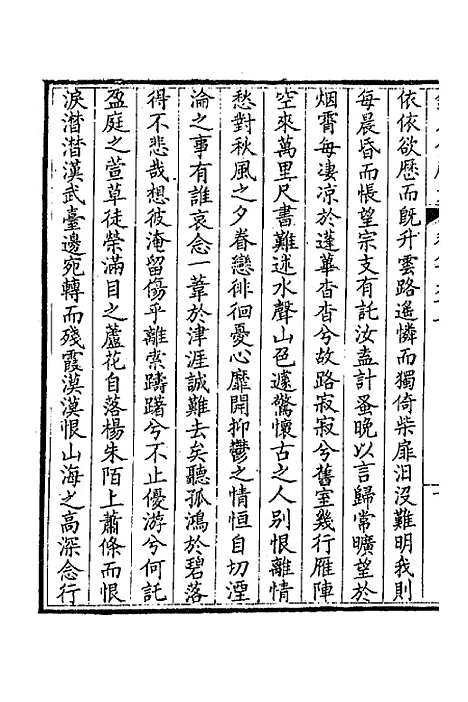 依依欲歷而旣升雲路遙憐而獨倚柴扉汨沒難明我則
每晨昏而悵望宗支有託汝盍計蚤晚以言歸常曠望於
烟霄每凄涼於蓬蓽杳杳兮故路寂寂兮舊室幾行雁陣
空來萬里尺書難述水聲山色遽驚懷古之人別恨離情
愁對秋風之夕眷戀徘徊憂心靡開抑鬱之情恒自切湮
淪之事有誰哀念一葦於津涯誠難去矣聽孤鴻於碧落
得不悲哉想彼淹留傷乎離索躊躇兮不止優游兮何託
盈庭之萱草徒榮滿目之蘆花自落楊朱陌上蕭條而恨
淚潸潸漢武臺邊宛轉而殘霞漠漠恨山海之高深念行